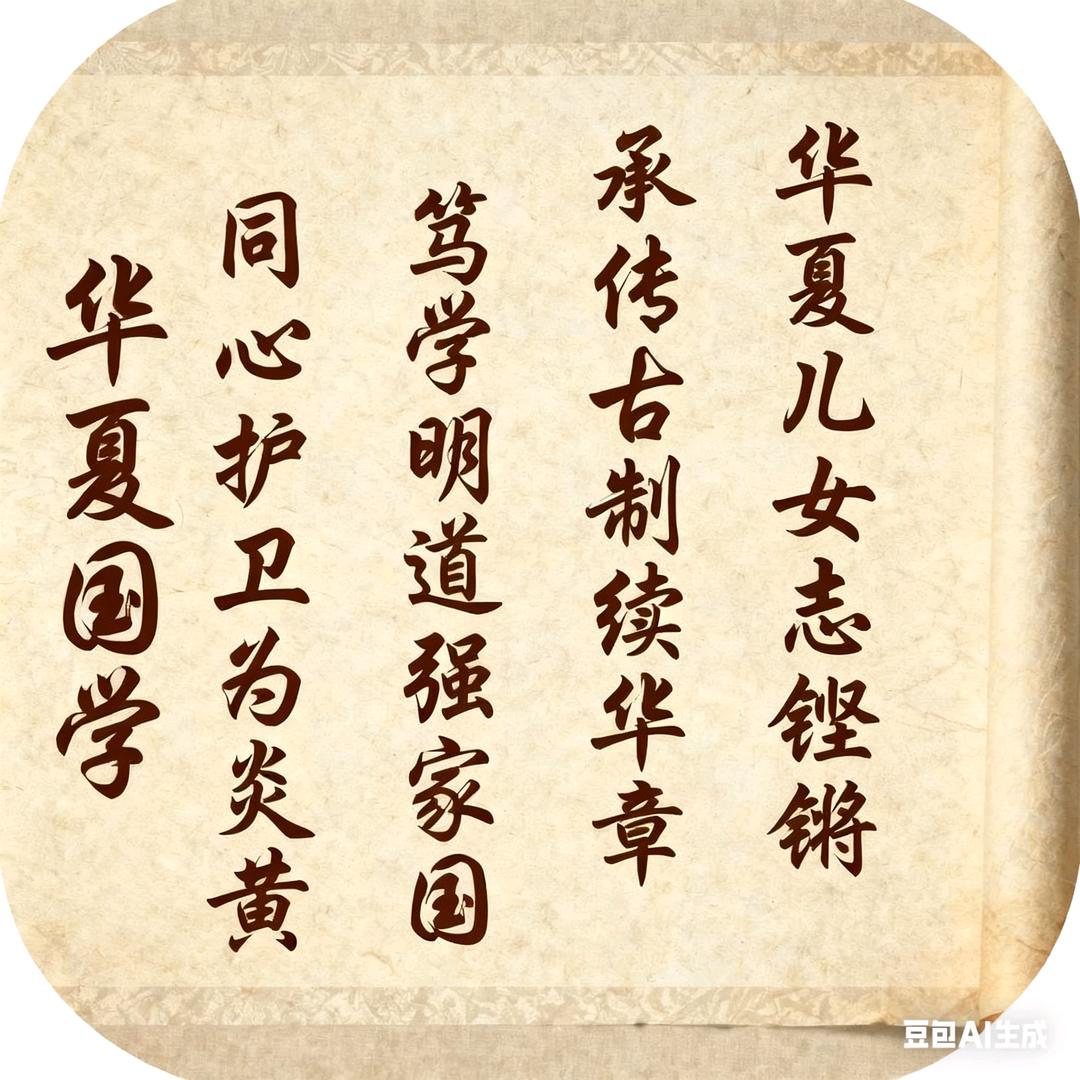 华夏儿女志铿锵
承传古制续华章
笃学明道强家国
同心护卫为炎黄
华夏国学
豆包AI生成